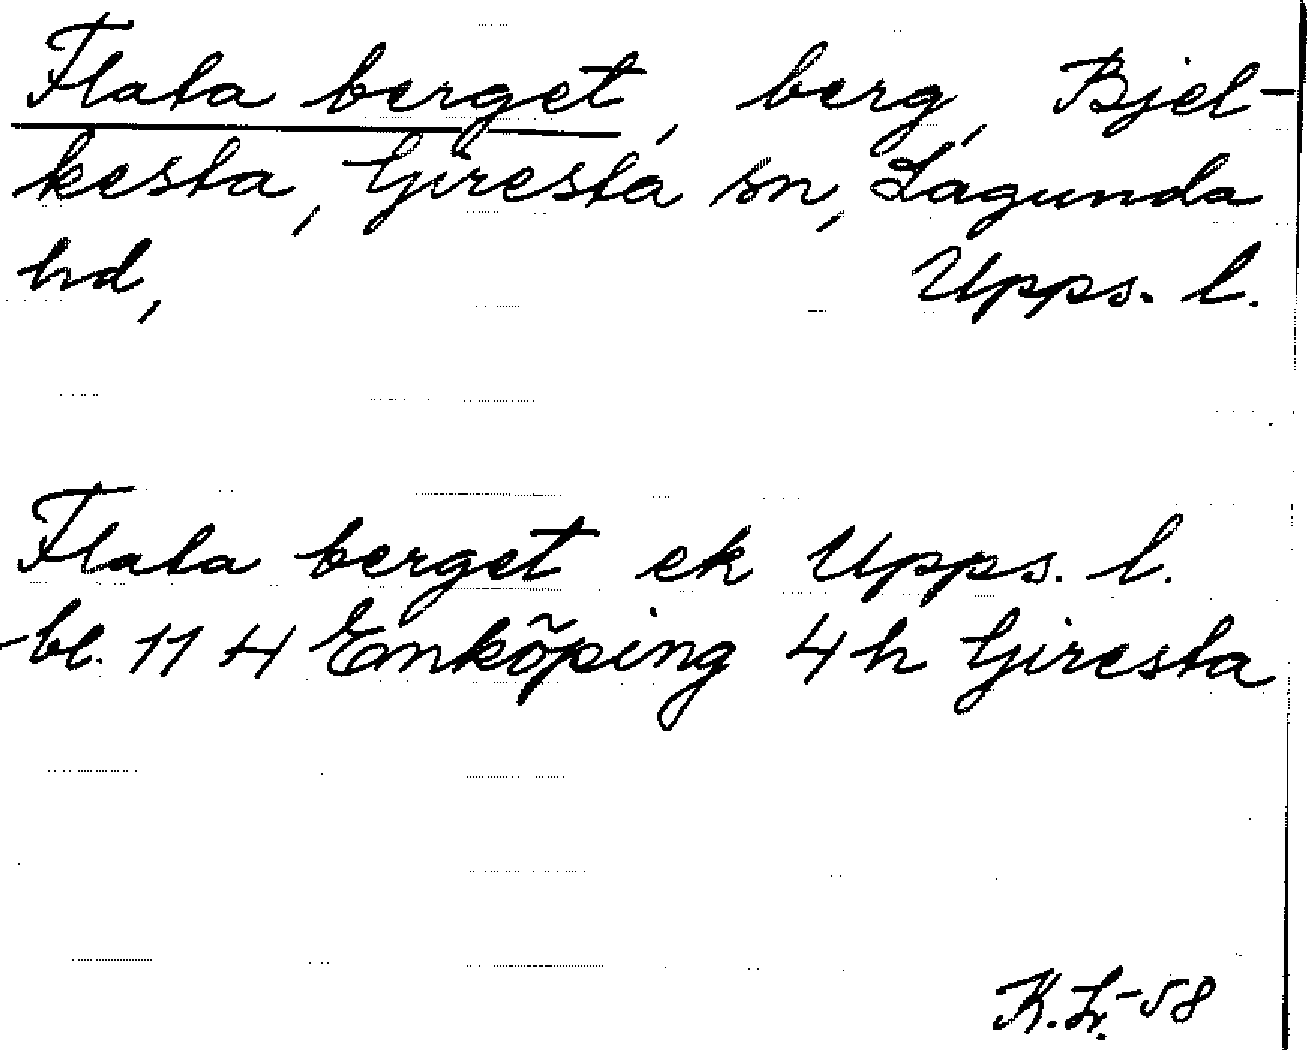 Flata berget, berg, Bjel-
kesta, Giresta sn, Lagunda
hd, Upps. l.
Flata berget ek Upps. l.
bl. 11 H Enköping 4 h Giresta
K. Lr. -58